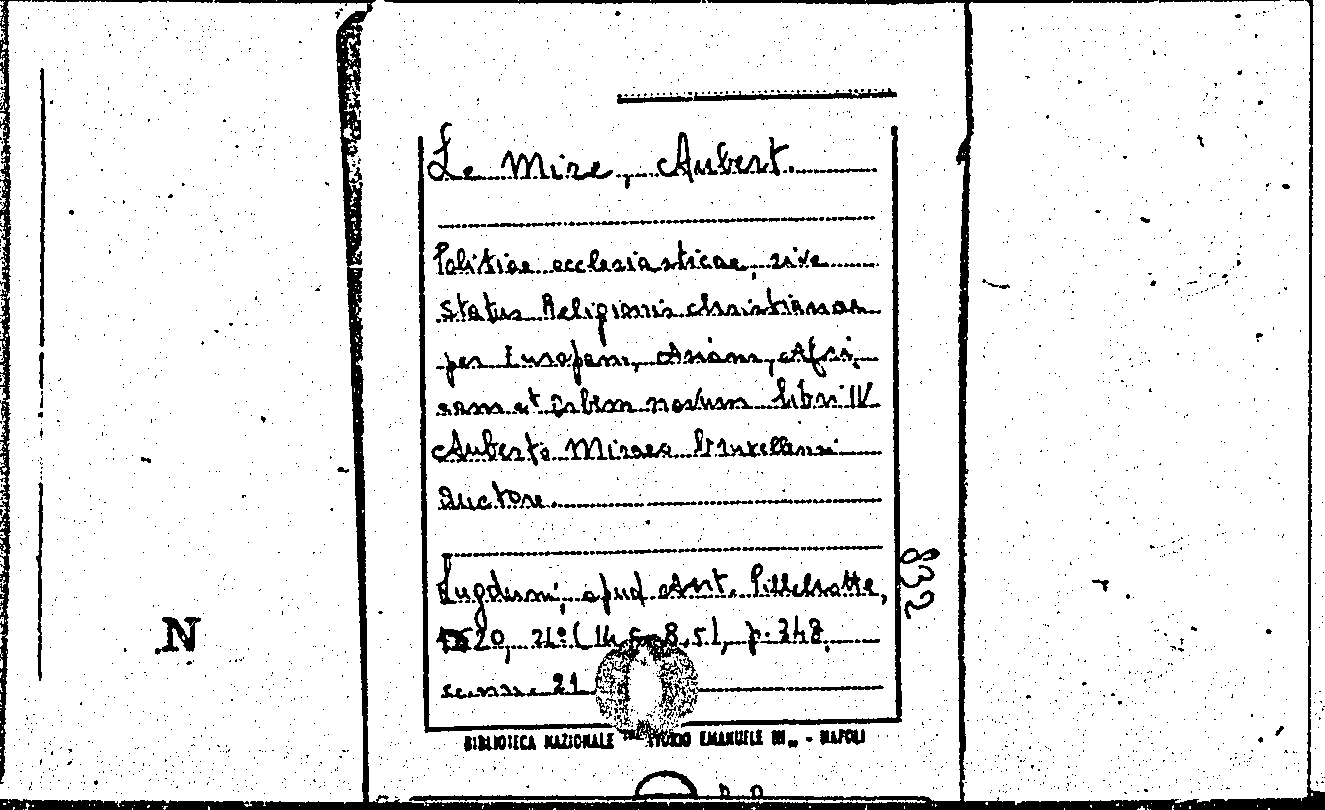 Le Mire, Aubert.
Politiae ecclesiasticae, sive
status Religionis christianae
per Europam, Asiam, Afri
cam et Orbem novum libri IV
Auberto Miraeo Bruxellensi
auctore.
Lugduni, apud Ant. Pillehotte,
20, 21º (14,5 8,5), p. 348
21
832
N
BIBLIOTECA NAZIONALE EMANUELE III - NAPOLI